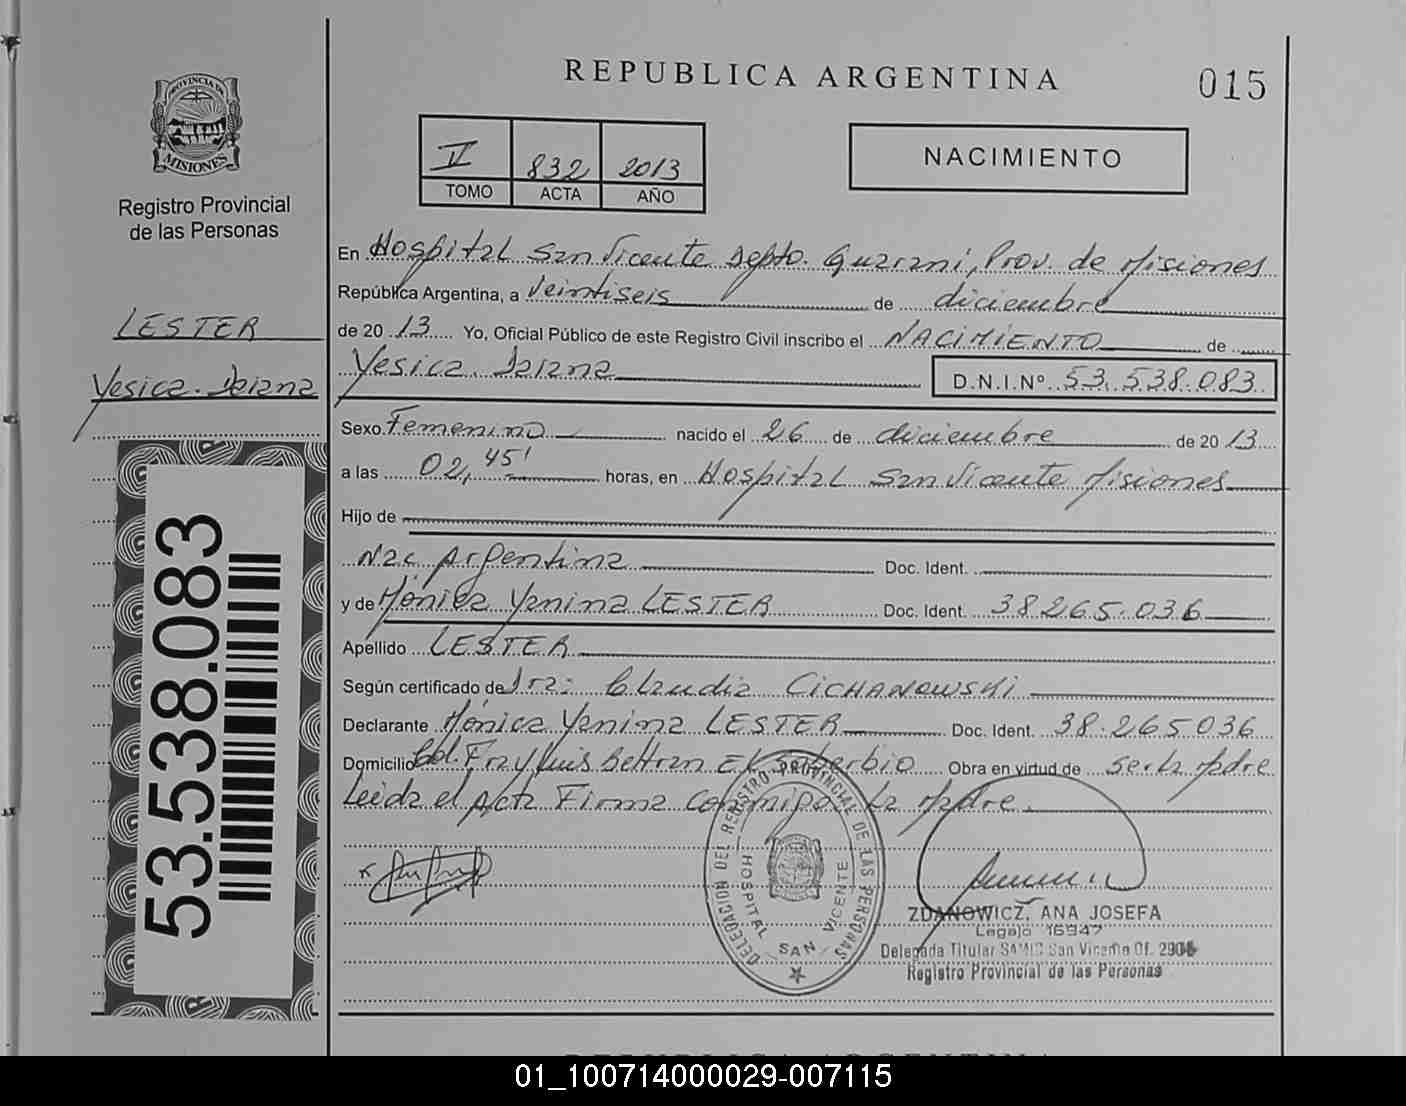 REPUBLICA ARGENTINA
015
PROVINCIA DE
MISIONES
Registro Provincial
de las Personas
LESTER
Yesica Daiana
53.538.083
V 832 2013
TOMO ACTA AÑO
NACIMIENTO
En Hospital San Vicente Depto. Guarani, Prov. de Misiones
República Argentina, a Veintiseis de diciembre
de 2013 Yo, Oficial Público de este Registro Civil inscribo el NACIMIENTO de
Yesica Daiana D.N.I.Nº 53.538.083
Sexo Femenino nacido el 26 de diciembre de 2013
a las 02,45' horas, en Hospital San Vicente Misiones
Hijo de
Nac Argentina Doc. Ident.
y de Mónica Yanina LESTER Doc. Ident. 38.265.036
Apellido LESTER
Según certificado de Dra: Claudia CICHANOWSKI
Declarante Mónica Yanina LESTER Doc. Ident. 38.265.036
Domicilio Col. Fray Luis Beltran El Soberbio Obra en virtud de ser la Madre
Leida el Acta Firma Conmigo La Madre.
DELEGACION DEL REGISTRO PROVINCIAL DE LAS PERSONAS
HOSPITAL SAN VICENTE
ZDANOWICZ, ANA JOSEFA
Legajo 16947
Delegada Titular SAMIC San Vicente Of.
Registro Provincial de las Personas
REPUBLICA ARGENTINA
01_100714000029-007115